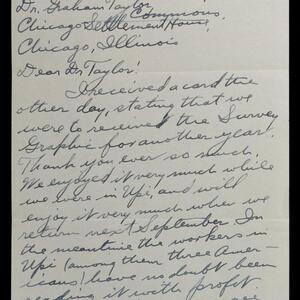 Dr. Graham Taylor,
Chicago Settlement House,
Commons,
Chicago, Illinois
Dear Dr Taylor:
I received a card the
other day, stating that we
were to received the Survey
Graphic for another year.
Thank you ever so much.
We enjoyed it very much while
we were in Upi, and will
enjoy it very much when we
return next September. In
the meantime the workers in
Upi (among them three Amer-
icans) have no doubt been
reading it with profit